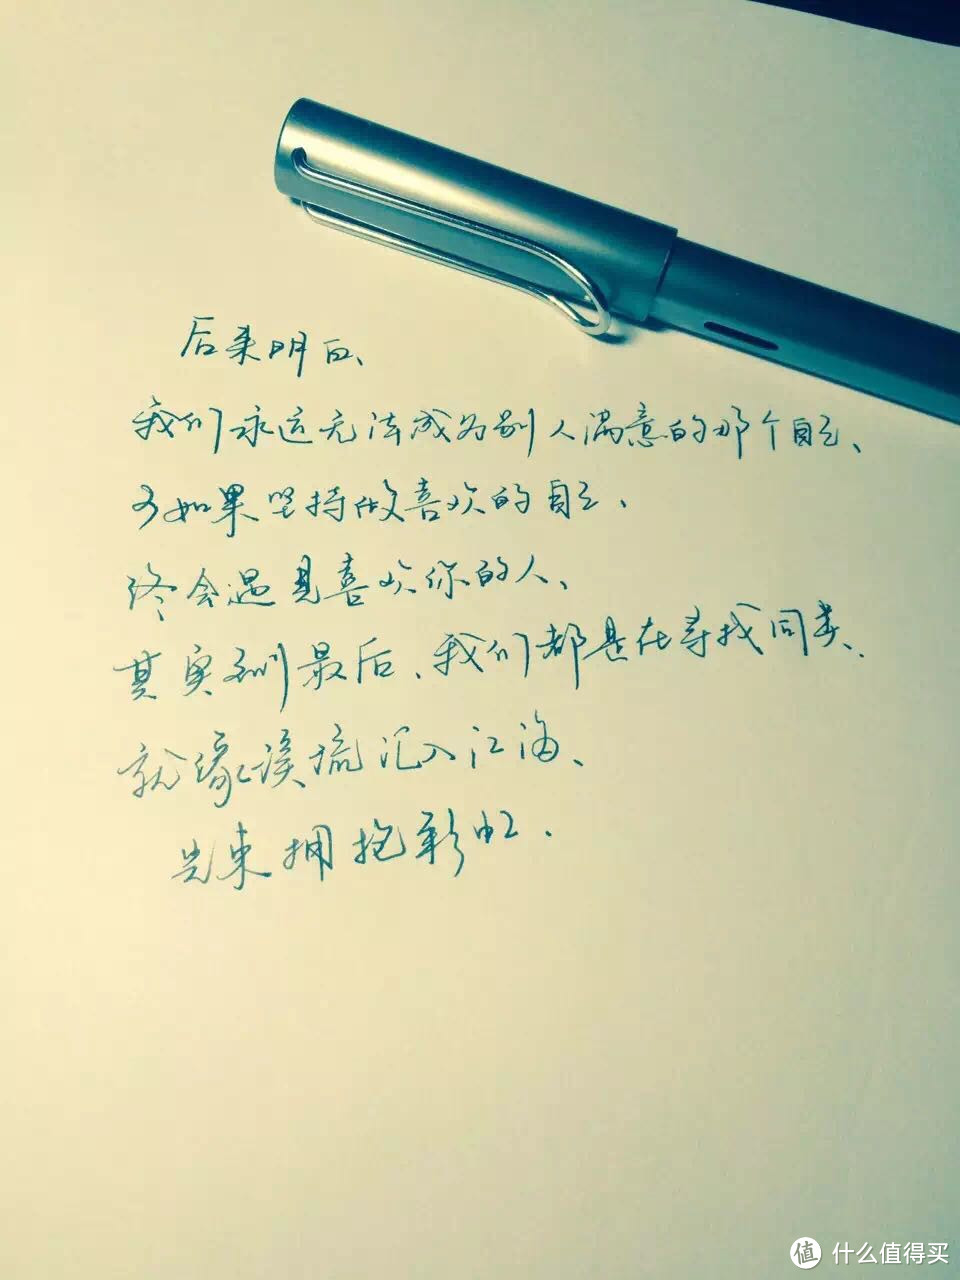 后来明白、
我们永远无法成为别人满意的那个自己、
可如果坚持做喜欢的自己、
终会遇见喜欢你的人、
其实到最后、我们都是在寻找同类、
就像溪流汇入江海、
光束拥抱彩虹.
值 什么值得买